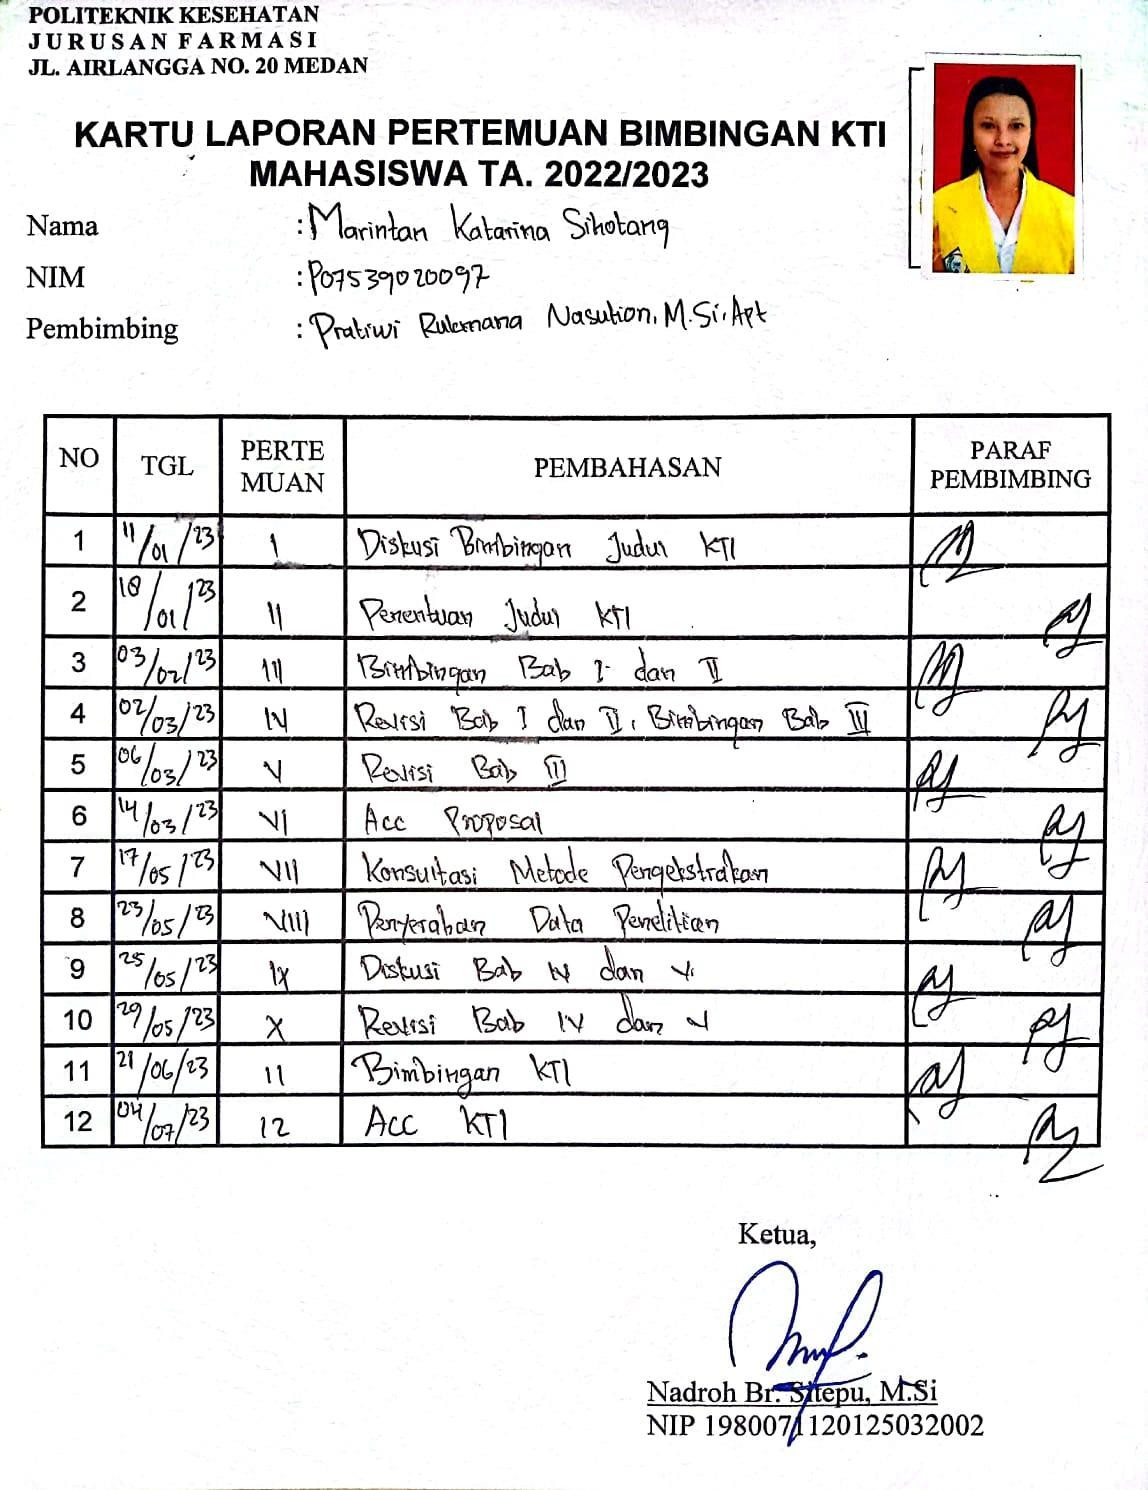 POLITEKNIK KESEHATAN
JURUSAN FARMASI
JL. AIRLANGGA NO. 20 MEDAN
KARTU LAPORAN PERTEMUAN BIMBINGAN KTI
MAHASISWA TA. 2022/2023
Nama : Marintan Katarina Sihotang
NIM : P07539020097
Pembimbing : Pratiwi Rukmana Nasution, M.Si, Apt
NO TGL PERTE MUAN PEMBAHASAN PARAF PEMBIMBING
1 11/01/23 I Diskusi Bimbingan Judul KTI
2 18/01/23 II Penentuan Judul KTI
3 03/02/23 III Bimbingan Bab I dan II
4 02/03/23 IV Revisi Bab I dan II, Bimbingan Bab III
5 06/03/23 V Revisi Bab III
6 14/03/23 VI Acc Proposal
7 17/05/23 VII Konsultasi Metode Pengekstrakan
8 23/05/23 VIII Penyerahan Data Penelitian
9 25/05/23 IX Diskusi Bab IV dan V
10 29/05/23 X Revisi Bab IV dan V
11 21/06/23 11 Bimbingan KTI
12 04/07/23 12 Acc KTI
Ketua,
Nadroh Br. Sitepu, M.Si
NIP 198007112012503​2002